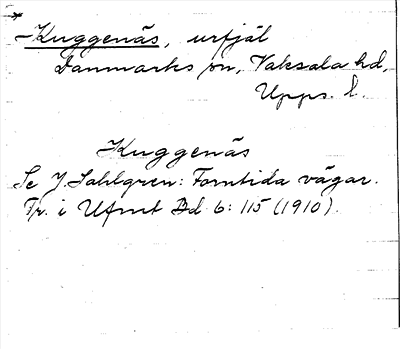 -Kuggenäs, urfjäl
Danmarks sn, Vaksala hd,
Upps. l.
Kuggenäs
Se J. Sahlgren: Forntida vägar.
Tr. i Ufmt Bd 6: 115 (1910).